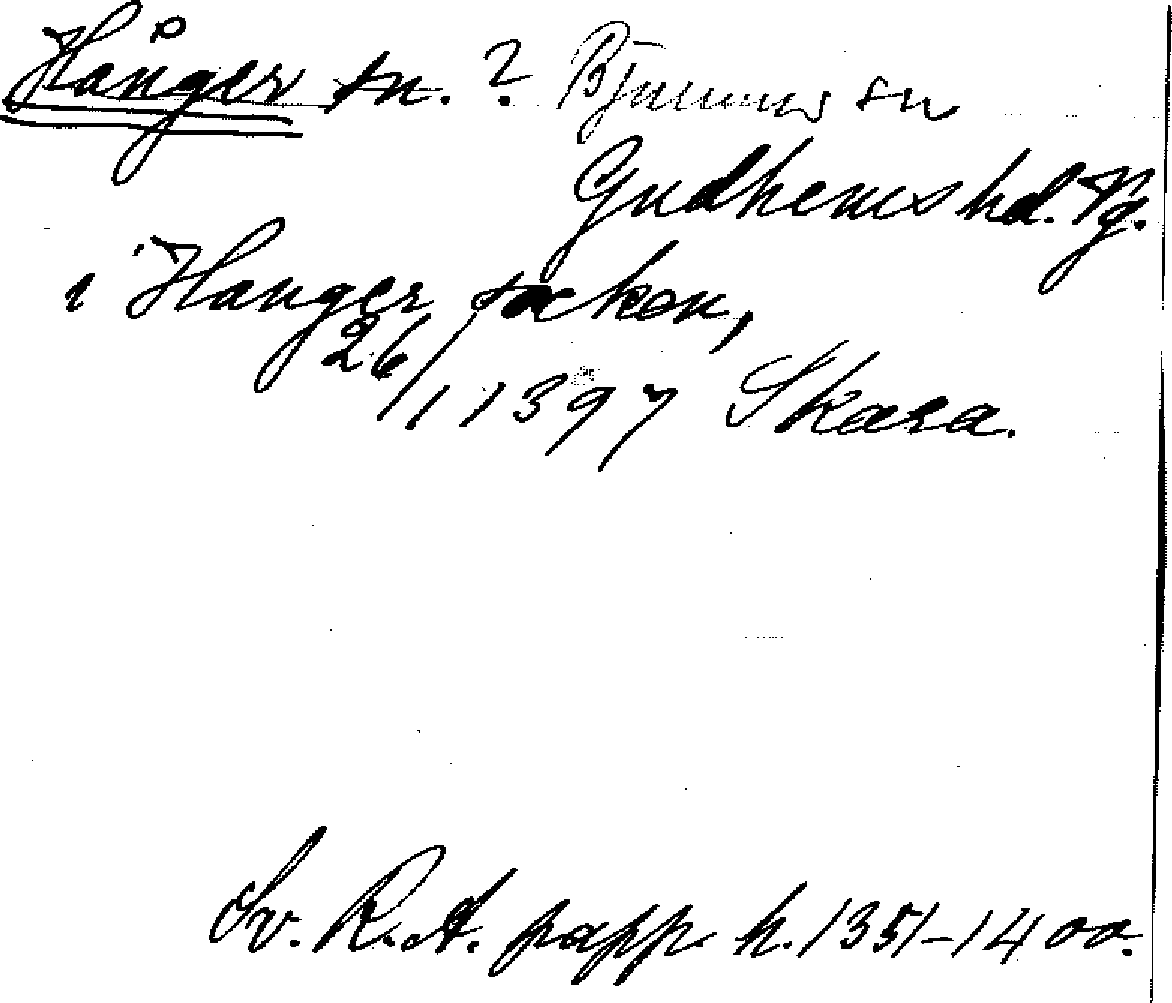 Hånger sn. ? Bjurums sn
Gudhems hd. Vg.
i Hanger sokn,
26/1 1397 Skara.
Sv. R.A. papp. h. 1351-1400.